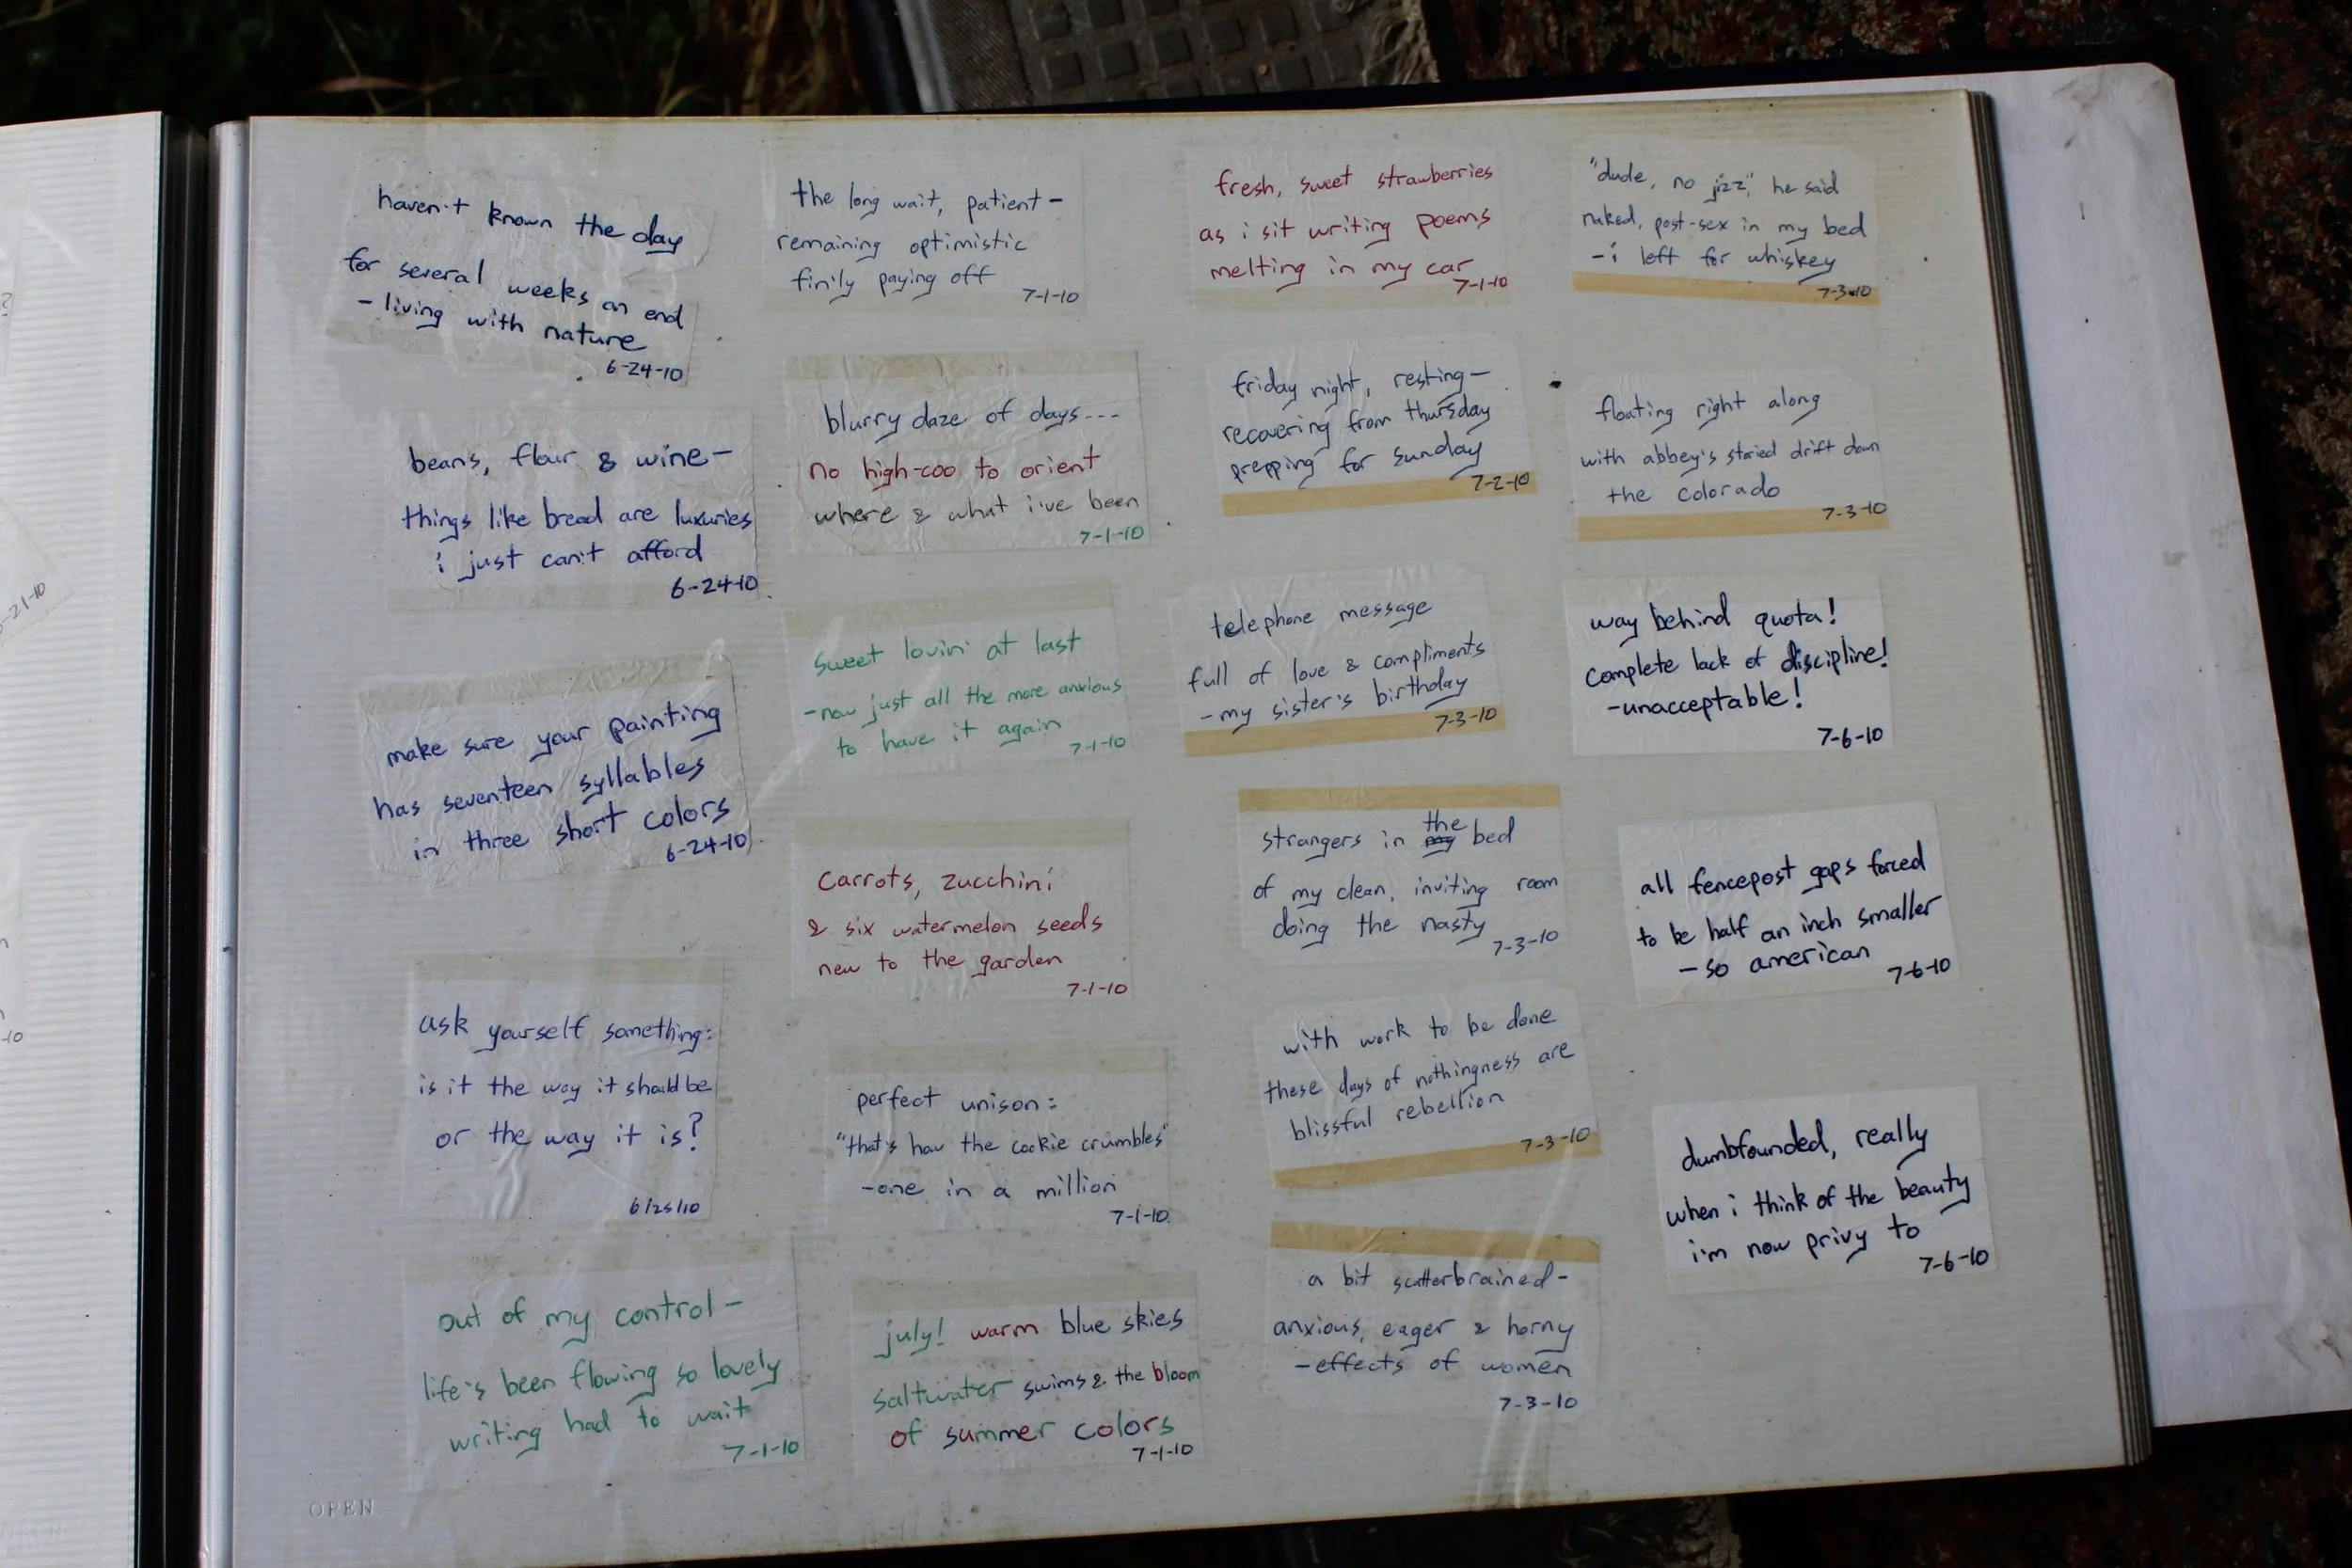 haven't known the day
for several weeks on end
- living with nature
6-24-10
beans, flour & wine-
things like bread are luxuries
i just can't afford
6-24-10
make sure your painting
has seventeen syllables
in three short colors
6-24-10
ask yourself something:
is it the way it should be
or the way it is?
6/25/10
out of my control-
life's been flowing so lovely
writing had to wait
7-1-10
the long wait, patient-
remaining optimistic
fin'ly paying off
7-1-10
blurry daze of days...
no high-coo to orient
where & what i've been
7-1-10
sweet lovin' at last
-now just all the more anxious
to have it again
7-1-10
carrots, zucchini
& six watermelon seeds
new to the garden
7-1-10
perfect unison:
"that's how the cookie crumbles"
-one in a million
7-1-10
july! warm blue skies
saltwater swims & the bloom
of summer colors
7-1-10
fresh, sweet strawberries
as i sit writing poems
melting in my car
7-1-10
friday night, resting-
recovering from thursday
prepping for sunday
7-2-10
telephone message
full of love & compliments
-my sister's birthday
7-3-10
strangers in the my bed
of my clean, inviting room
doing the nasty
7-3-10
with work to be done
these days of nothingness are
blissful rebellion
7-3-10
a bit scatterbrained-
anxious, eager & horny
-effects of women
7-3-10
"dude, no jizz", he said
naked, post-sex in my bed
-i left for whiskey
7-3-10
floating right along
with abbey's storied drift down
the colorado
7-3-10
way behind quota!
complete lack of discipline!
-unacceptable!
7-6-10
all fencepost gaps forced
to be half an inch smaller
-so american
7-6-10
dumbfounded, really
when i think of the beauty
i'm now privy to
7-6-10
OPEN
-21-10
-10